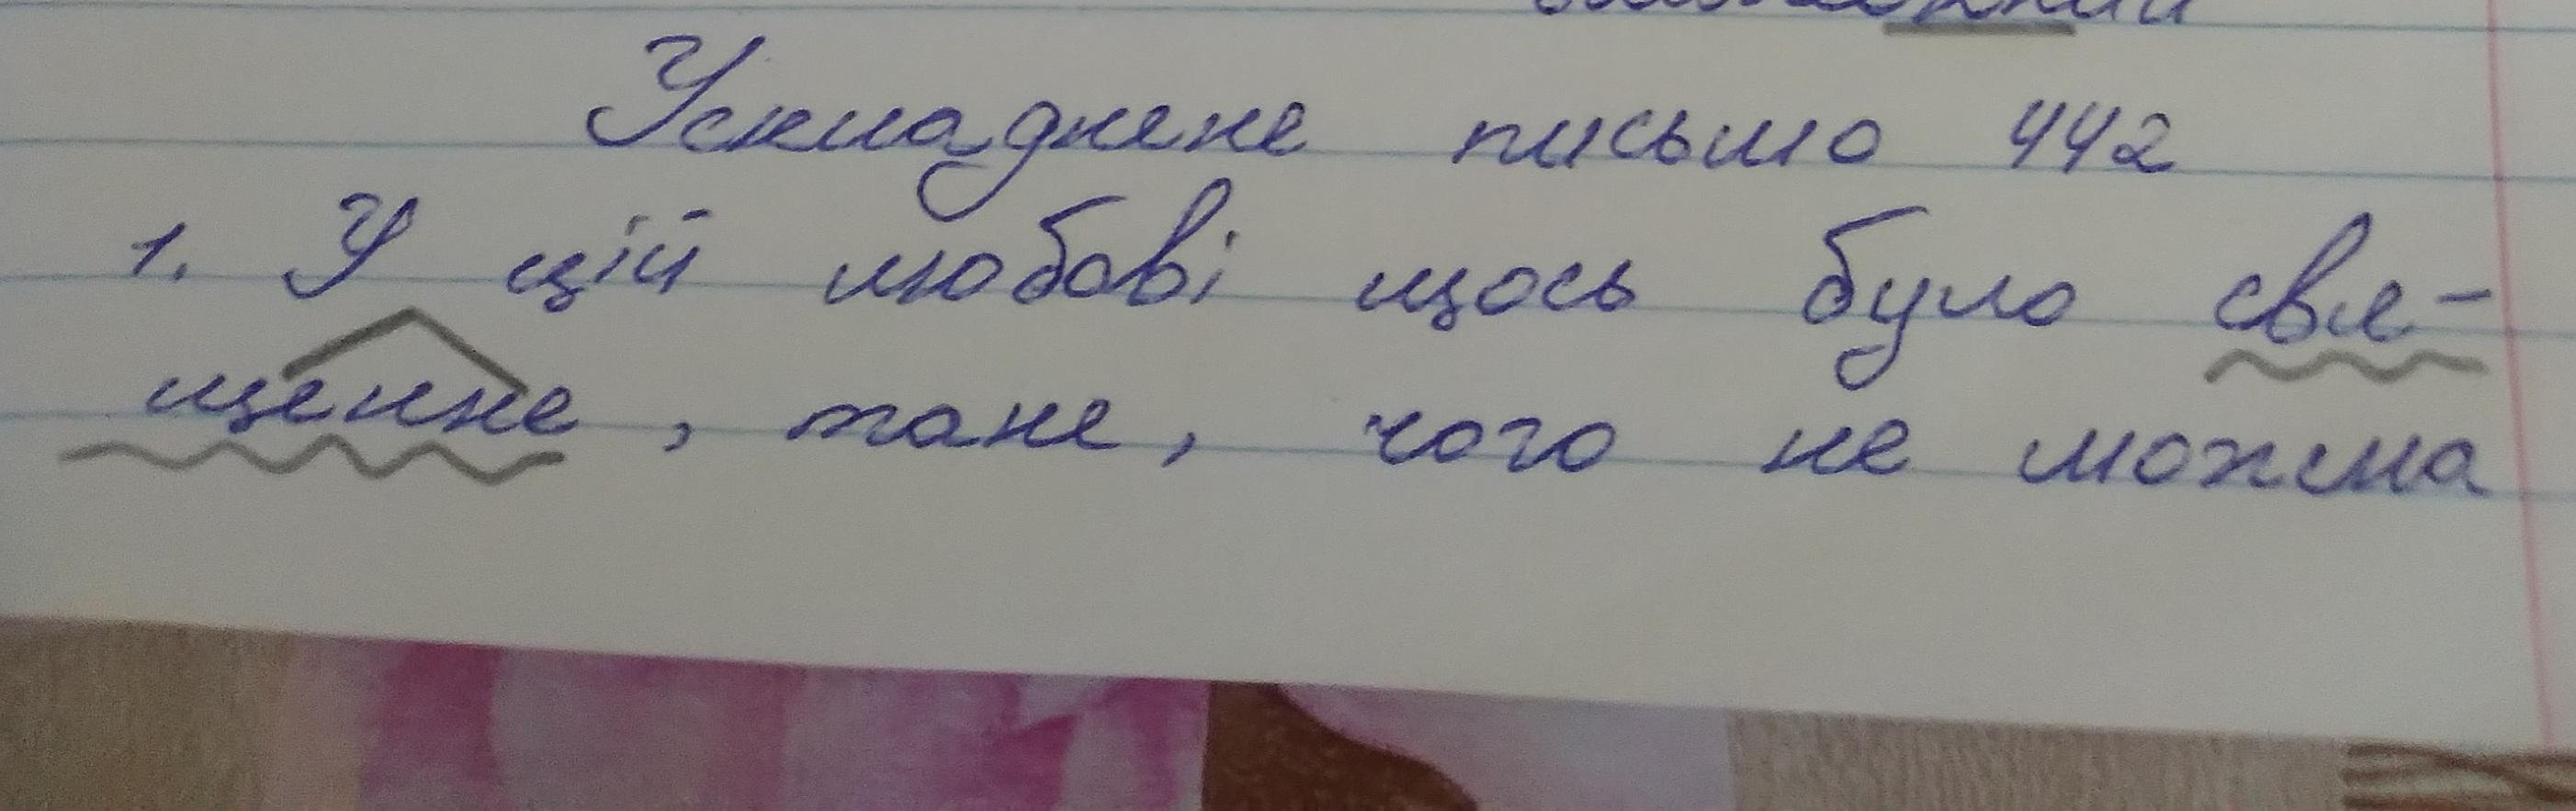 Ускладнене письмо 442
1. У цій любові щось було свя-
щенне, таке, чого не можна